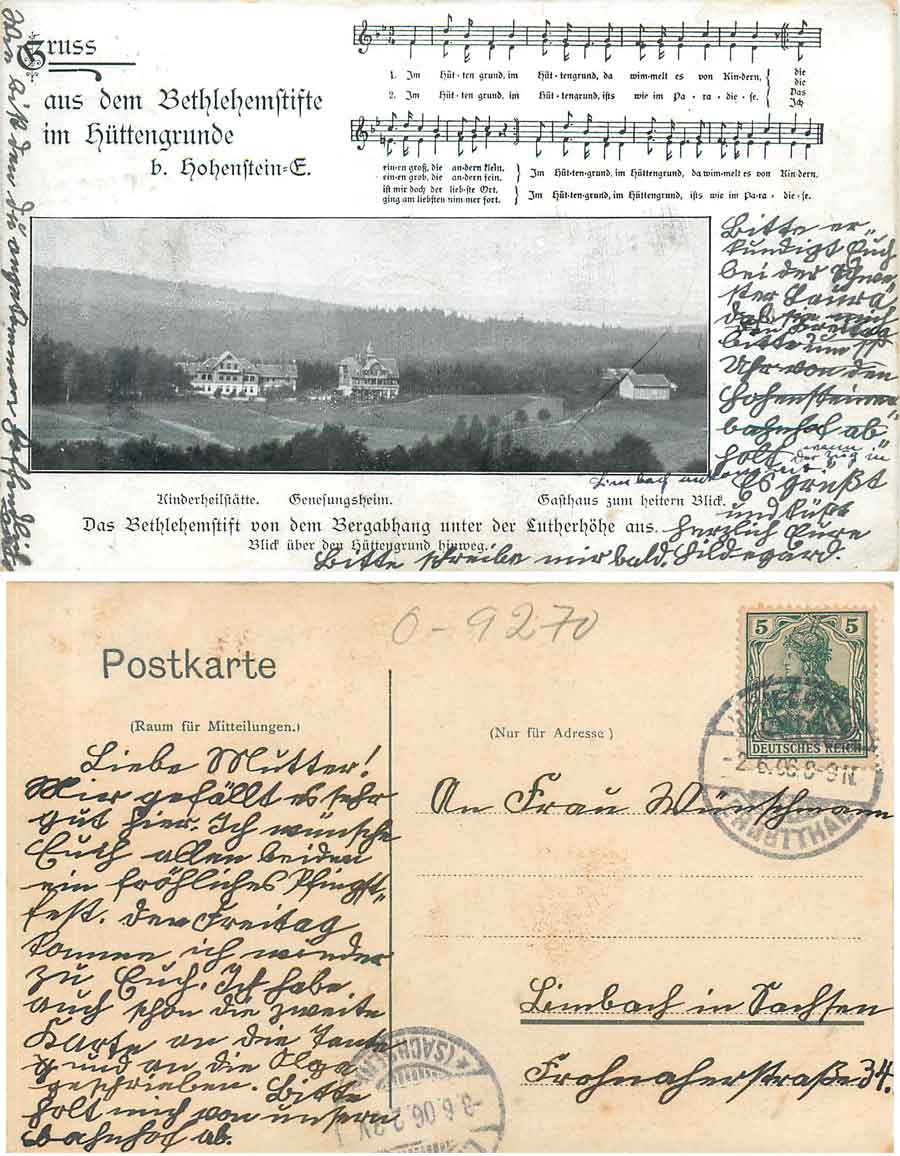 Gruss
aus dem Bethlehemstifte
im Hüttengrunde
b. Hohenstein=E.
1. Im Hüt-ten grund, im Hüt-tengrund, da wim-melt es von Kin-dern, die
die
2. Im Hüt-ten grund, im Hüt-tengrund, ists wie im Pa-ra-die-se. Das
Ich
ein-en groß, die an-dern klein,
ein-en grob, die an-dern fein.
Im Hüt-ten-grund, im Hüttengrund, da wim-melt es von Kin-dern.
ist mir doch der lieb-ste Ort,
ging am liebsten nim-mer fort.
Im Hüt-ten-grund, im Hüttengrund, ists wie im Pa-ra-die-se.
Bitte er-
kundigt Euch
bei der Schwe-
ster Laura,
daß sie mich
den Freitag
bitte um
Uhr von den
Hohensteiner
bahnhof ab
holt wenn
der Zug in
Limbach ankommt.
Es grüßt
und küßt
herzlich Eure
Hildegard.
Bitte schreibe mir bald.
Kinderheilstätte. Genesungsheim. Gasthaus zum heitern Blick.
Das Bethlehemstift von dem Bergabhang unter der Lutherhöhe aus.
Blick über den Hüttengrund hinweg.
0-9270
Postkarte
(Raum für Mitteilungen.)
Liebe Mutter!
Mir gefällt es sehr
gut hier. Ich wünsche
Euch allen beiden
ein fröhliches Pfingst-
fest. Den Freitag
komme ich wieder
zu Euch. Ich habe
auch schon die zweite
Karte an die Tante
und an die Olga
geschrieben. Bitte
holt mich von unsern
bahnhof ab.
(Nur für Adresse)
5 5
DEUTSCHES REICH
-2.6.06.8-9N.
An Frau Wünschmann
Limbach in Sachsen
Frohnaherstraße 34.
(SACHSEN)
-3.6.06.